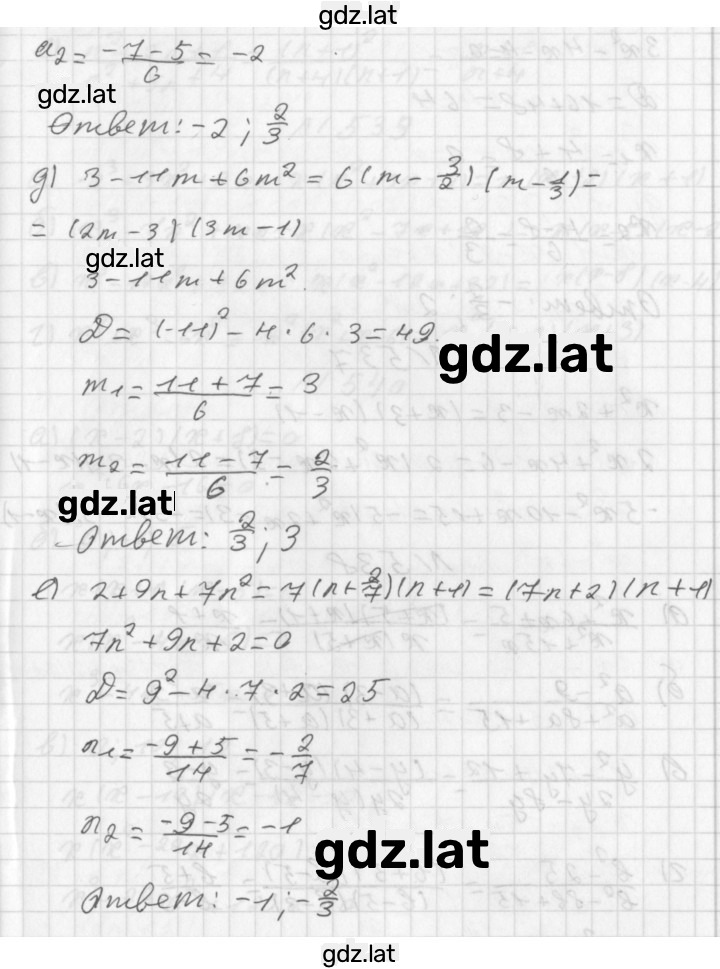 gdz.lat
a₂ = (-7-5)/6 = -2
gdz.lat
Ответ: -2 ; 2/3
д) 3 - 11m + 6m² = 6(m - 3/2)(m - 1/3) =
= (2m - 3)(3m - 1)
gdz.lat
3 - 11m + 6m².
D = (-11)² - 4 · 6 · 3 = 49.
gdz.lat
m₁ = (11 + 7)/6 = 3
m₂ = (11 - 7)/6 = 2/3
gdz.lat
Ответ: 2/3 ; 3
е) 2 + 9n + 7n² = 7(n + 2/7)(n + 1) = (7n + 2)(n + 1)
7n² + 9n + 2 = 0
D = 9² - 4 · 7 · 2 = 25
n₁ = (-9 + 5)/14 = - 2/7
n₂ = (-9 - 5)/14 = -1
gdz.lat
Ответ: -1 ; - 2/3
gdz.lat